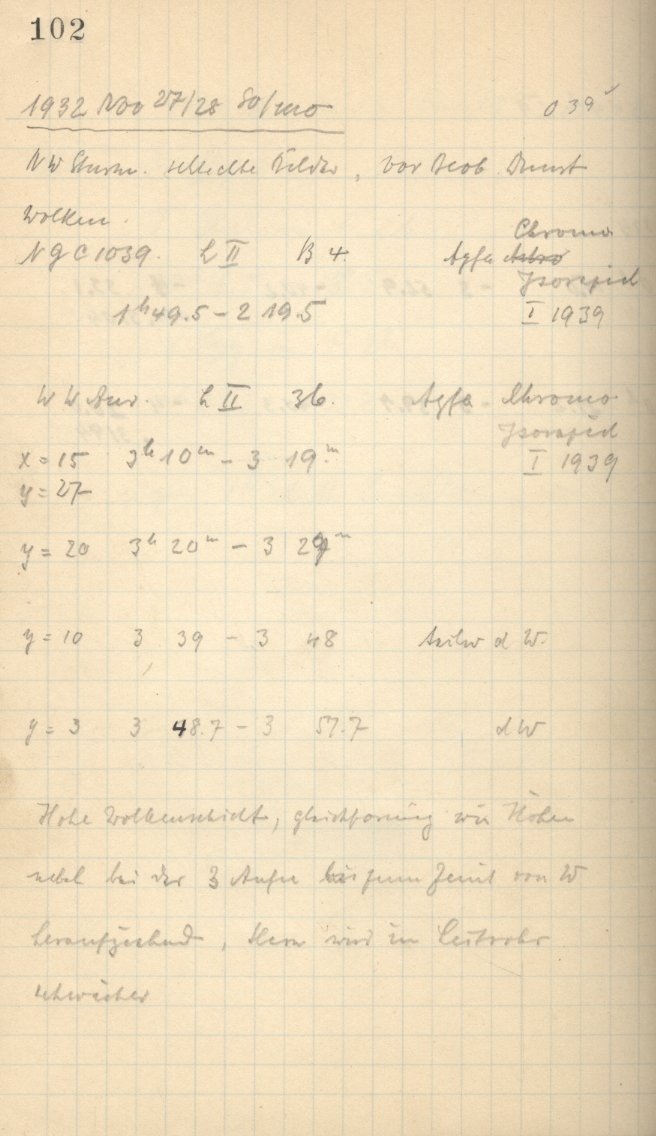 102
1932 Nov 27/28 So/Mo 039
NW Sturm. schlechte Bilder, vor Beob. Dunst
Wolken.
Chromo
NGC 1039. L II B 4 Agfa Astro
Isorapid
1h 49.5 – 2 19.5 I 1939
WW Aur. L II 36. Agfa Chromo
Isorapid
x = 15 3h 10m – 3 19m I 1939
y = 27
y = 20 3h 20m – 3 29m
y = 10 3 39 – 3 48 teilw d W.
y = 3 3 48.7 – 3 57.7 d W
Hohe Wolkenschicht, gleichförmig wie Höhen
nebel bei der 3 Aufn bis zum Zenit von W
heraufziehend, Stern wird im Leitrohr
schwächer